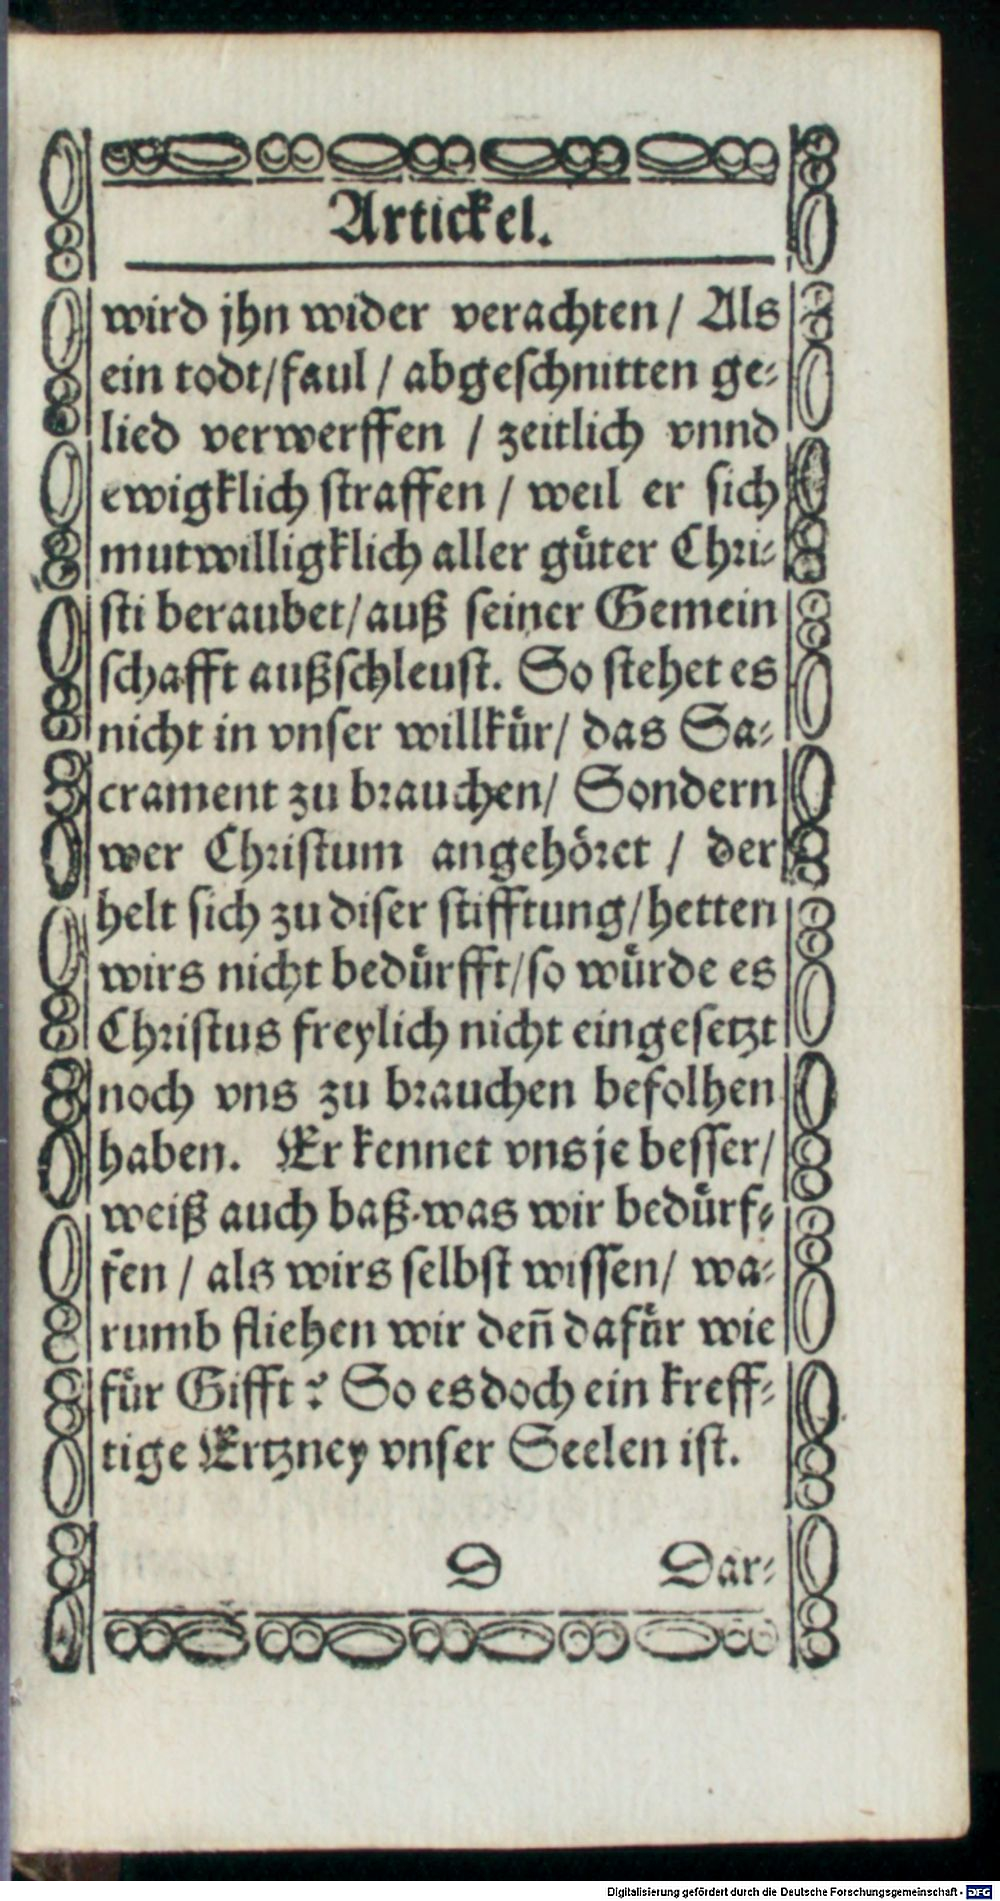 Artickel.
wird jhn wider verachten / Als
ein todt/faul / abgeschnitten ge-
lied verwerffen / zeitlich vnnd
ewigklich straffen / weil er sich
mutwilligklich aller guͤter Chri-
sti beraubet/auß seiner Gemein
schafft außschleust. So stehet es
nicht in vnser willkuͤr/ das Sa-
crament zu brauchen/ Sondern
wer Christum angehoͤret / der
helt sich zu diser stifftung/hetten
wirs nicht beduͤrfft/so wuͤrde es
Christus freylich nicht eingesetzt
noch vns zu brauchen befolhen
haben. Er kennet vns je besser/
weiß auch baß was wir beduͤrf-
fen / als wirs selbst wissen/ wa-
rumb fliehen wir deñ dafuͤr wie
fuͤr Gifft? So es doch ein kreff-
tige Ertzney vnser Seelen ist.
D Dar-
Digitalisierung gefördert durch die Deutsche Forschungsgemeinschaft - DFG